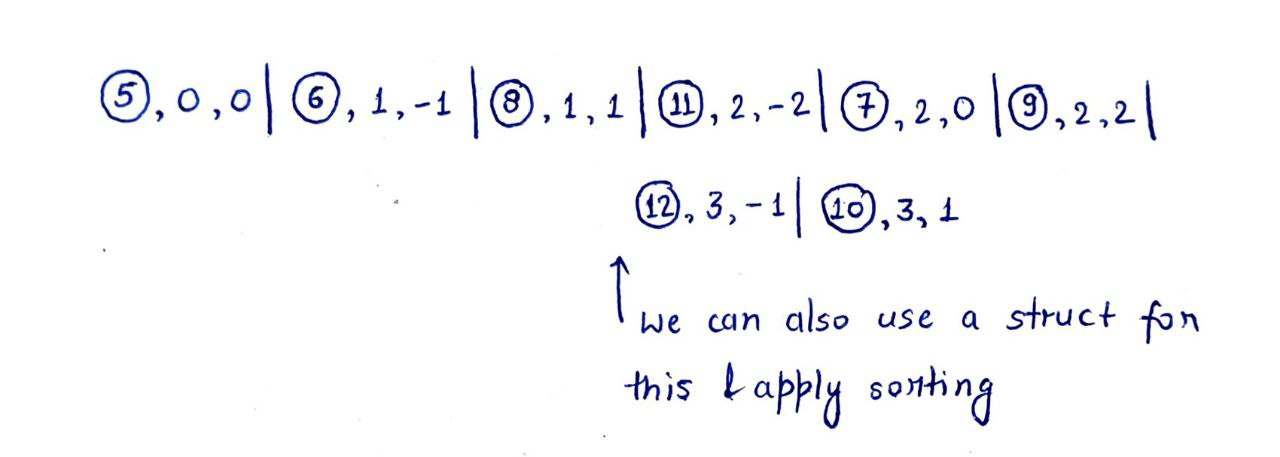 ⑤, 0, 0 | ⑥, 1, -1 | ⑧, 1, 1 | ⑪, 2, -2 | ⑦, 2, 0 | ⑨, 2, 2 |
⑫, 3, -1 | ⑩, 3, 1
we can also use a struct for
this & apply sorting